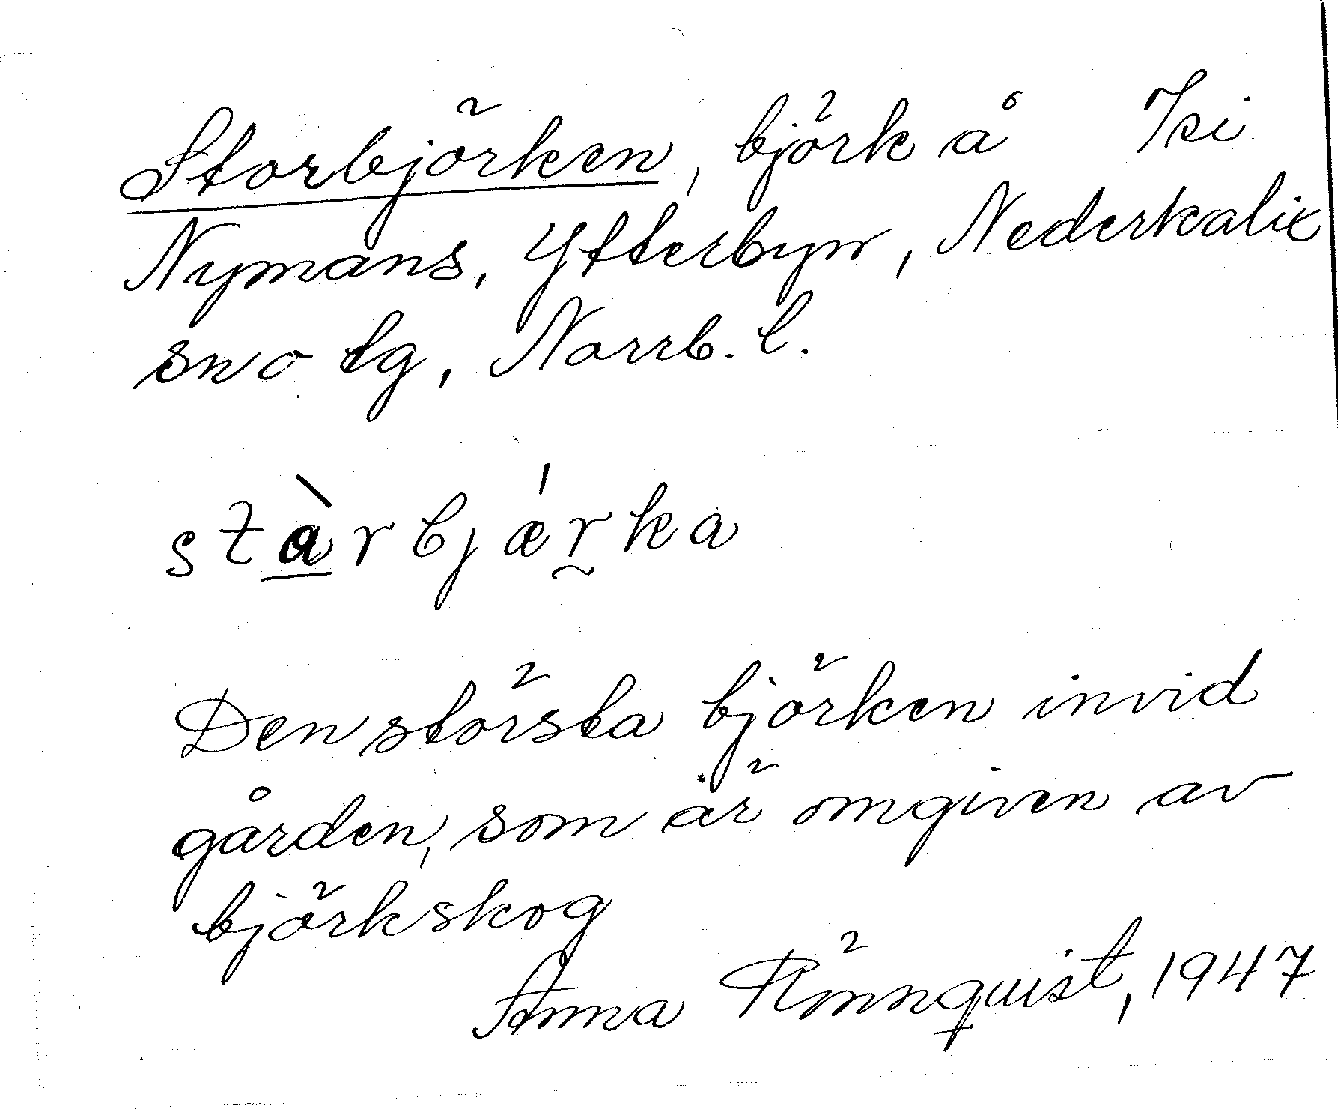 Storbjörken, björk å Isi
Nymans, Ytterbyn, Nederkalix
sn o tg, Norrb. l.
stàrbjǽrka
Den största björken invid
gården, som är omgiven av
björkskog
Anna Rönnquist, 1947